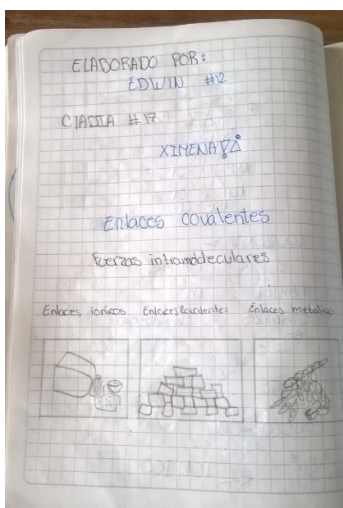 ELABORADO POR:
EDWIN #12
#17
XIMENA
Enlaces covalentes
Fuerzas intramoleculares
Enlaces iónicos Enlaces Covalentes Enlaces metalico